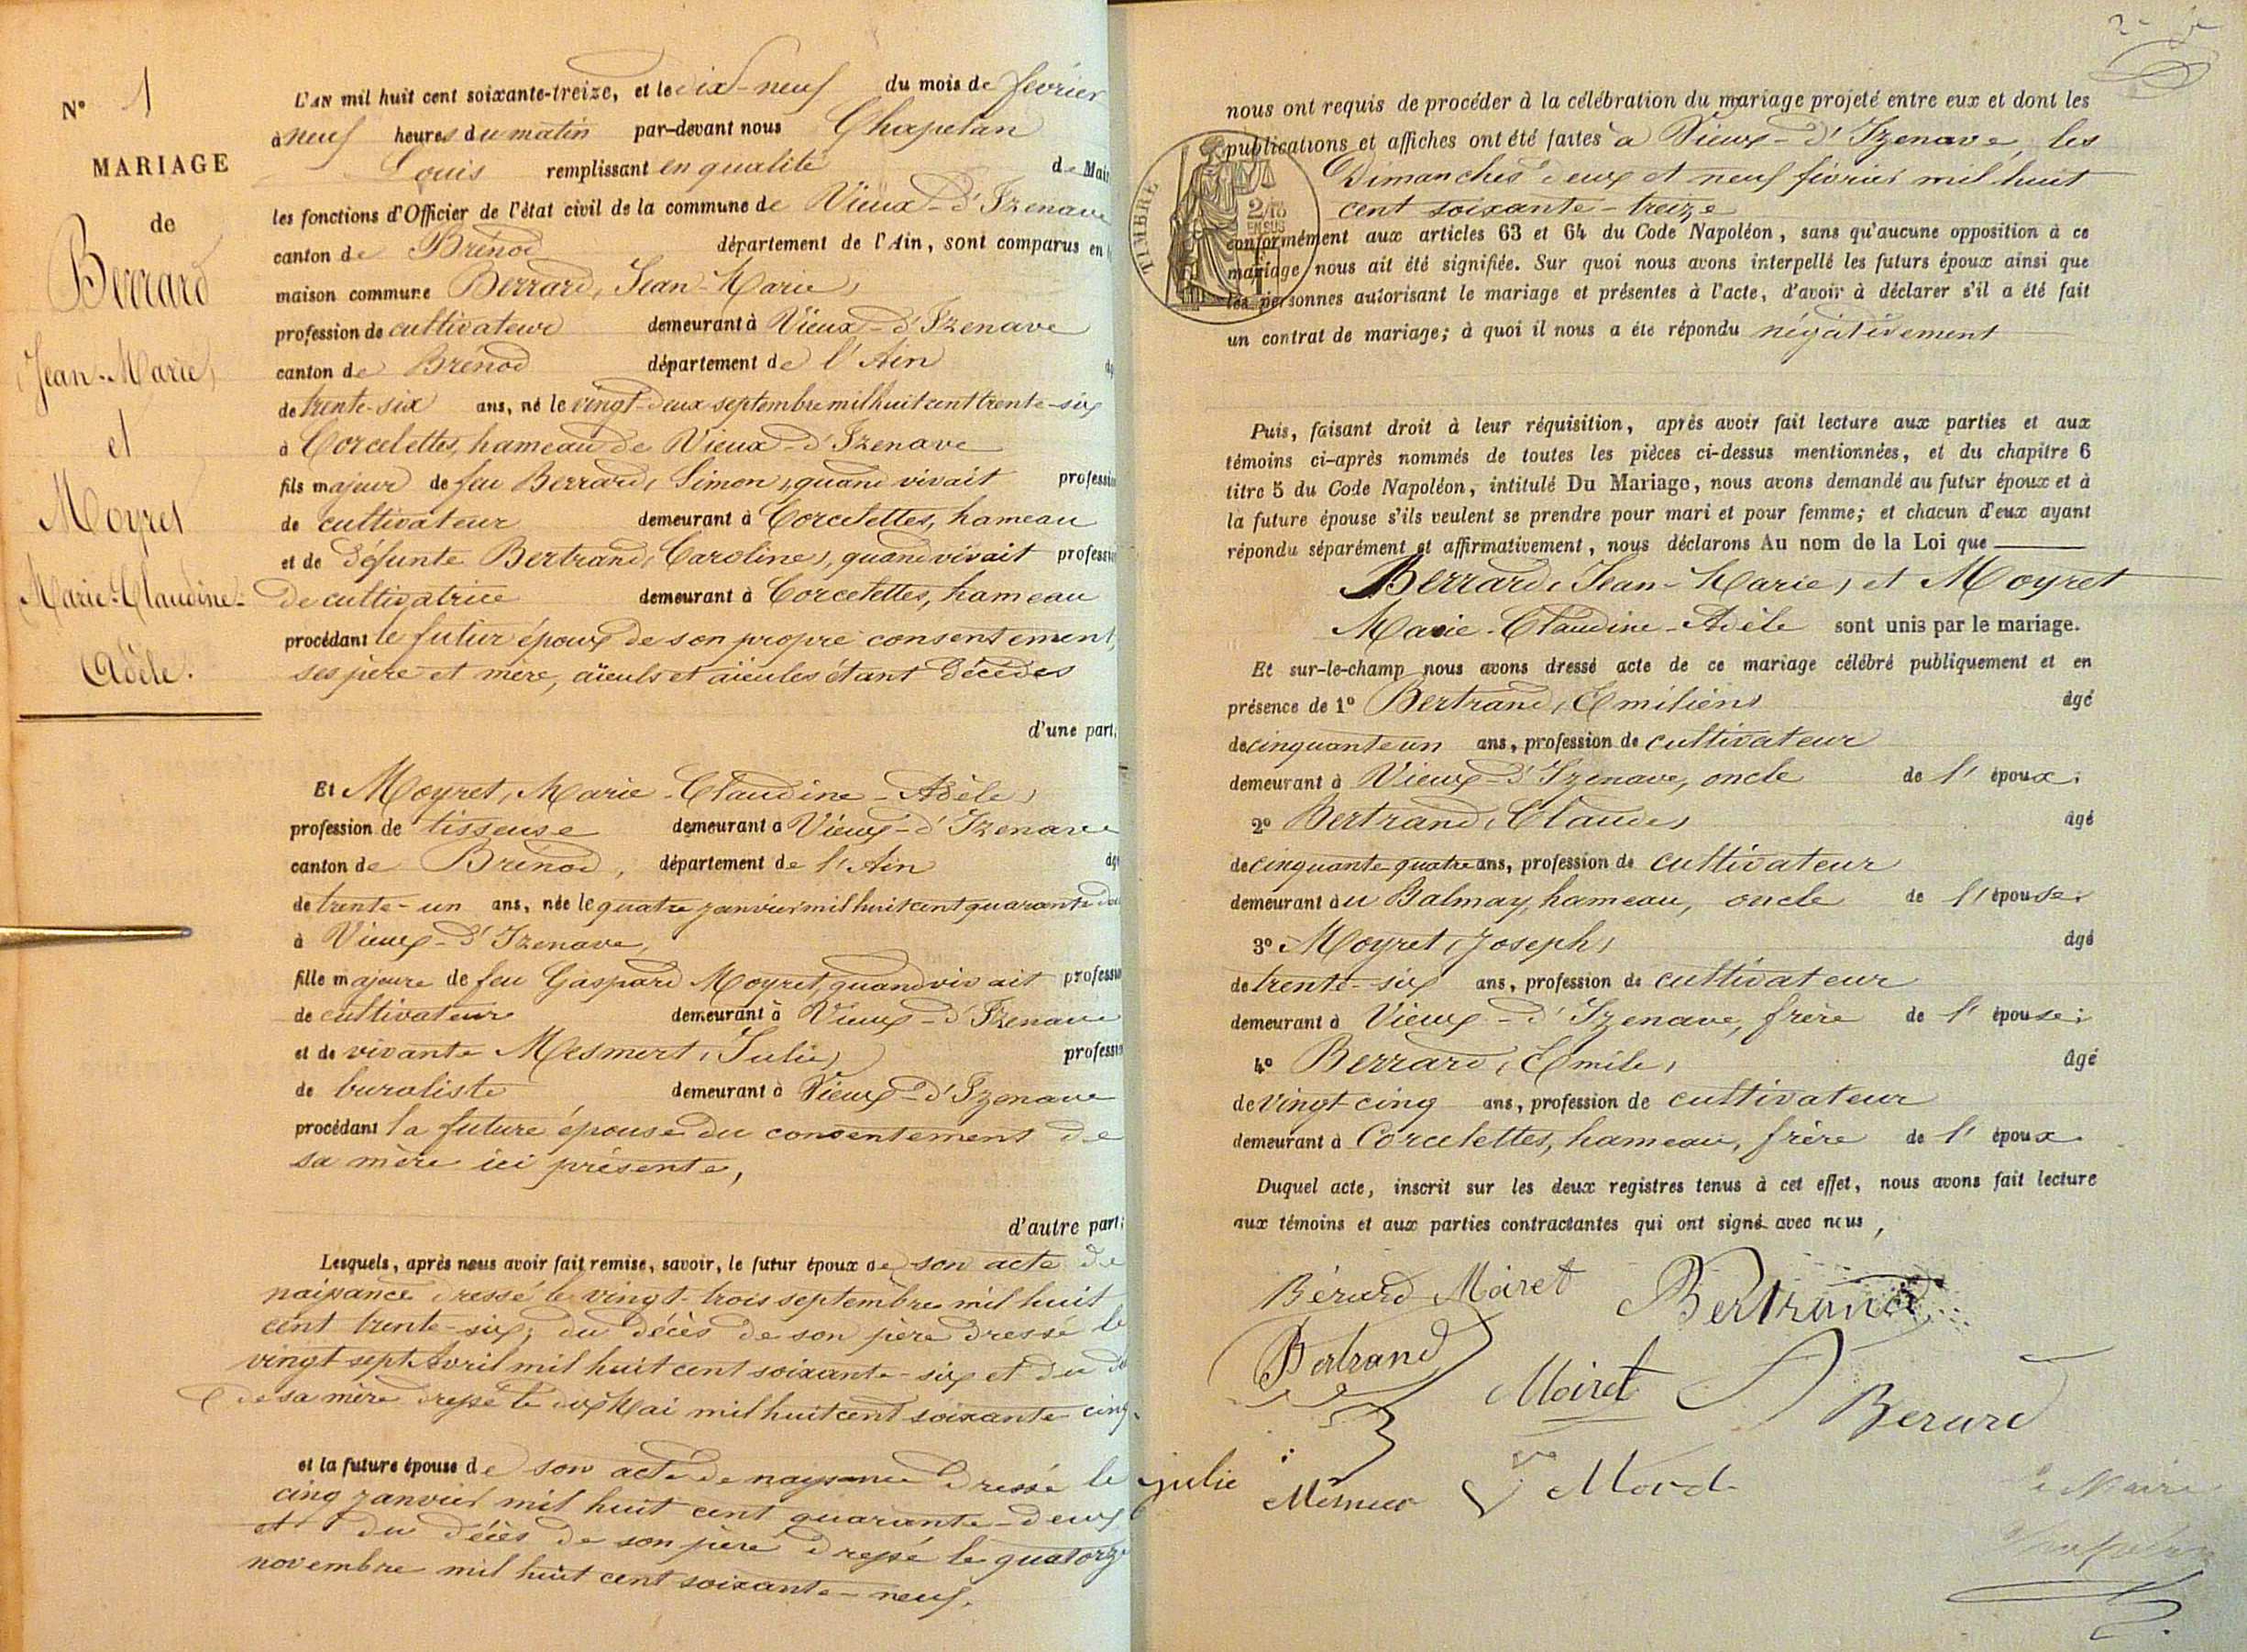 N° 1
MARIAGE
de
Berrard
Jean-Marie,
et
Moyret
Marie-Claudine-
Adèle.
L'AN mil huit cent soixante-treize, et le dix-neuf du mois de février
à neuf heures du matin par-devant nous Chapelan
Louis remplissant en qualité de Mai
les fonctions d'Officier de l'état civil de la commune de Vieux-d'Izenave
canton de Brénod département de l'Ain, sont comparus en
maison commune Berrard, Jean-Marie,
profession de cultivateur demeurant à Vieux-d'Izenave
canton de Brénod département de l'Ain
de trente-six ans, né le vingt-deux septembre mil huit cent trente-six
à Corcelettes, hameau de Vieux-d'Izenave
fils majeur de feu Berrard, Simon, quand vivait professio
de cultivateur demeurant à Corcelettes, hameau
et de défunte Bertrand, Caroline, quand vivait profess
de cultivatrice demeurant à Corcelettes, hameau
procédant le futur époux de son propre consentement,
ses père et mère, aïeuls et aïeules étant décédés
d'une part,
Et Moyret, Marie-Claudine-Adèle,
profession de tisseuse demeurant à Vieux-d'Izenave
canton de Brénod, département de l'Ain âgé
de trente-un ans, née le quatre janvier mil huit cent quarante-deu
à Vieux-d'Izenave,
fille majeure de feu Gaspard Moyret, quand vivait professio
de cultivateur demeurant à Vieux-d'Izenave
et de vivante Mesmert, Julie, professio
de buraliste demeurant à Vieux-d'Izenave
procédant la future épouse du consentement de
sa mère ici présente,
d'autre part;
Lesquels, après nous avoir fait remise, savoir, le futur époux de son acte de
naissance dressé le vingt-trois septembre mil huit
cent trente-six; du décès de son père dressé le
vingt sept Avril mil huit cent soixante-six et du dé
de sa mère dressé le dix Mai mil huit cent soixante cinq.
et la future épouse de son acte de naissance dressé le
cinq janvier mil huit cent quarante-deux
et du décès de son père dressé le quatorze
novembre mil huit cent soixante-neuf.
nous ont requis de procéder à la célébration du mariage projeté entre eux et dont les
publications et affiches ont été faites à Vieux-d'Izenave, les
Dimanches deux et neuf février mil huit
cent soixante-treize
TIMBRE
conformément aux articles 63 et 64 du Code Napoléon, sans qu'aucune opposition à ce
mariage nous ait été signifiée. Sur quoi nous avons interpellé les futurs époux ainsi que
les personnes autorisant le mariage et présentes à l'acte, d'avoir à déclarer s'il a été fait
un contrat de mariage; à quoi il nous a été répondu négativement
Puis, faisant droit à leur réquisition, après avoir fait lecture aux parties et aux
témoins ci-après nommés de toutes les pièces ci-dessus mentionnées, et du chapitre 6
titre 5 du Code Napoléon, intitulé Du Mariage, nous avons demandé au futur époux et à
la future épouse s'ils veulent se prendre pour mari et pour femme; et chacun d'eux ayant
répondu séparément et affirmativement, nous déclarons Au nom de la Loi que
Berrard, Jean-Marie, et Moyret
Marie-Claudine-Adèle sont unis par le mariage.
Et sur-le-champ nous avons dressé acte de ce mariage célébré publiquement et en
présence de 1° Bertrand, Emilien, âgé
de cinquante un ans, profession de cultivateur
demeurant à Vieux-d'Izenave, oncle de l'époux;
2° Bertrand, Claude, âgé
de cinquante quatre ans, profession de cultivateur
demeurant au Balmay, hameau, oncle de l'épouse;
3° Moyret, Joseph, âgé
de trente-six ans, profession de cultivateur
demeurant à Vieux-d'Izenave, frère de l'épouse;
4° Berrard, Emile, âgé
de vingt-cinq ans, profession de cultivateur
demeurant à Corcelettes, hameau, frère de l'époux.
Duquel acte, inscrit sur les deux registres tenus à cet effet, nous avons fait lecture
aux témoins et aux parties contractantes qui ont signé avec nous,
Bérard Moiret Bertrand
Bertrand Moiret Berard
julie
le Maire